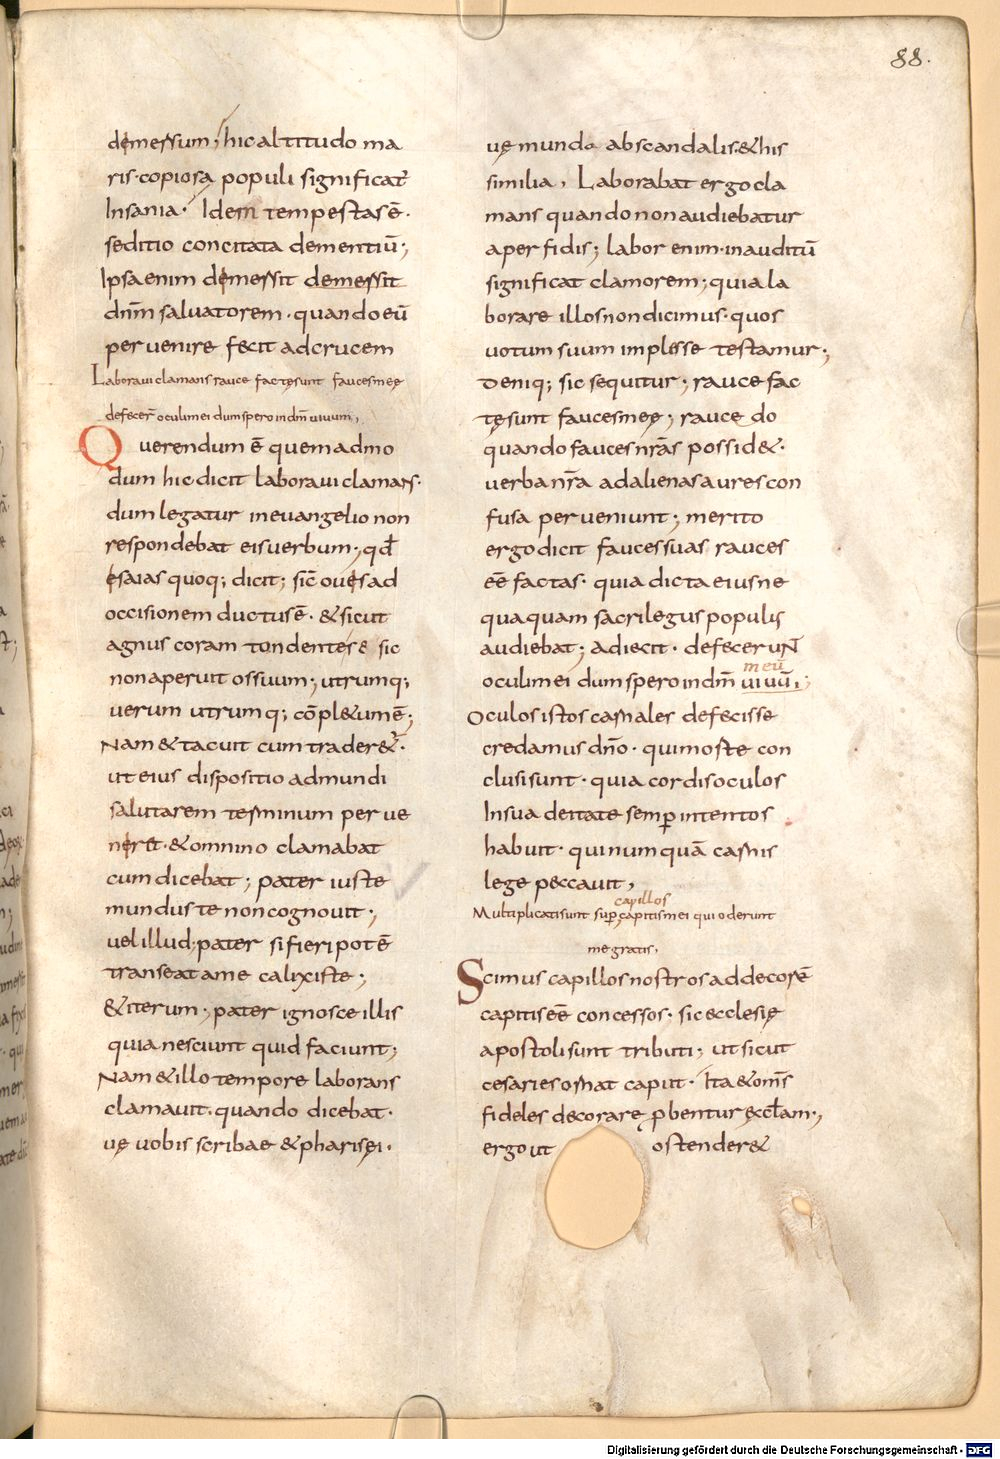 88.
demessum; hic altitudo ma
ris·copiosa populi significat̄
Insania· Idem tempestas ē·
seditio concitata dementiū;
Ipsa enim demessit demessit
dnm̄ saluatorem· quando eū
peruenire fecit ad crucem
Laboraui clamans rauce factę sunt fauces męę
defecer̄ oculi mei dum spero in dm̄ uiuum,
Querendum ē quemadmo
dum hic dicit laboraui clamans·
dum legatur in euangelio non
respondebat eis uerbum; qđ
esaias quoq; dicit; sic̄ ouis ad
occisionem ductus ē· & sicut
agnus coram tondente se sic
non aperuit os suum; utrumq;
uerum utrumq; cōpl&um ē;
Nam & tacuit cum trader&·
ut eius dispositio ad mundi
salutarem terminum perue
niret·& omnino clamabat
cum dicebat; pater iuste
mundus te non cognouit;
uel illud; pater si fieri pot ē
transeat a me calix iste;
& iterum; pater ignosce illis
quia nesciunt quid faciunt;
Nam & illo tempore laborans
clamauit· quando dicebat·
uę uobis scribae & pharisęi·
uę mundo ab scandalis·& his
similia, Laborabat ergo cla
mans quando non audiebatur
a perfidis; labor enim·inauditū
significat clamorem; quia la
borare illos non dicimus· quos
uotum suum implesse testamur;
Deniq; sic sequitur; rauce fac
tę sunt fauces męę; rauce do
quando fauces nrās possid&·
uerba nrā ad alienas aures con
fusa perueniunt; merito
ergo dicit fauces suas rauces
eē factas· quia dicta eius ne
quaquam sacrilegus populis
audiebat; adiecit· defecerunt
meū
oculi mei dum spero in dm̄ uiuū,;
Oculos istos carnales defecisse
credamus dnō· qui morte con
clusi sunt· quia cordis oculos
In sua deitate semp̄ intentos
habuit· qui numquā carnis
lege peccauit,
capillos
Multiplicati sunt sup̄ capitis mei qui oderunt
me gratis,
Scimus capillos nostros ad decorē
capitis eē concessos· sic ecclesię
apostoli sunt tributi; ut sicut
cesaries ornat caput· Ita & om̄s
fideles decorare p̄bentur ęccl̄am;
ergo ut ostender&
Digitalisierung gefördert durch die Deutsche Forschungsgemeinschaft - DFG